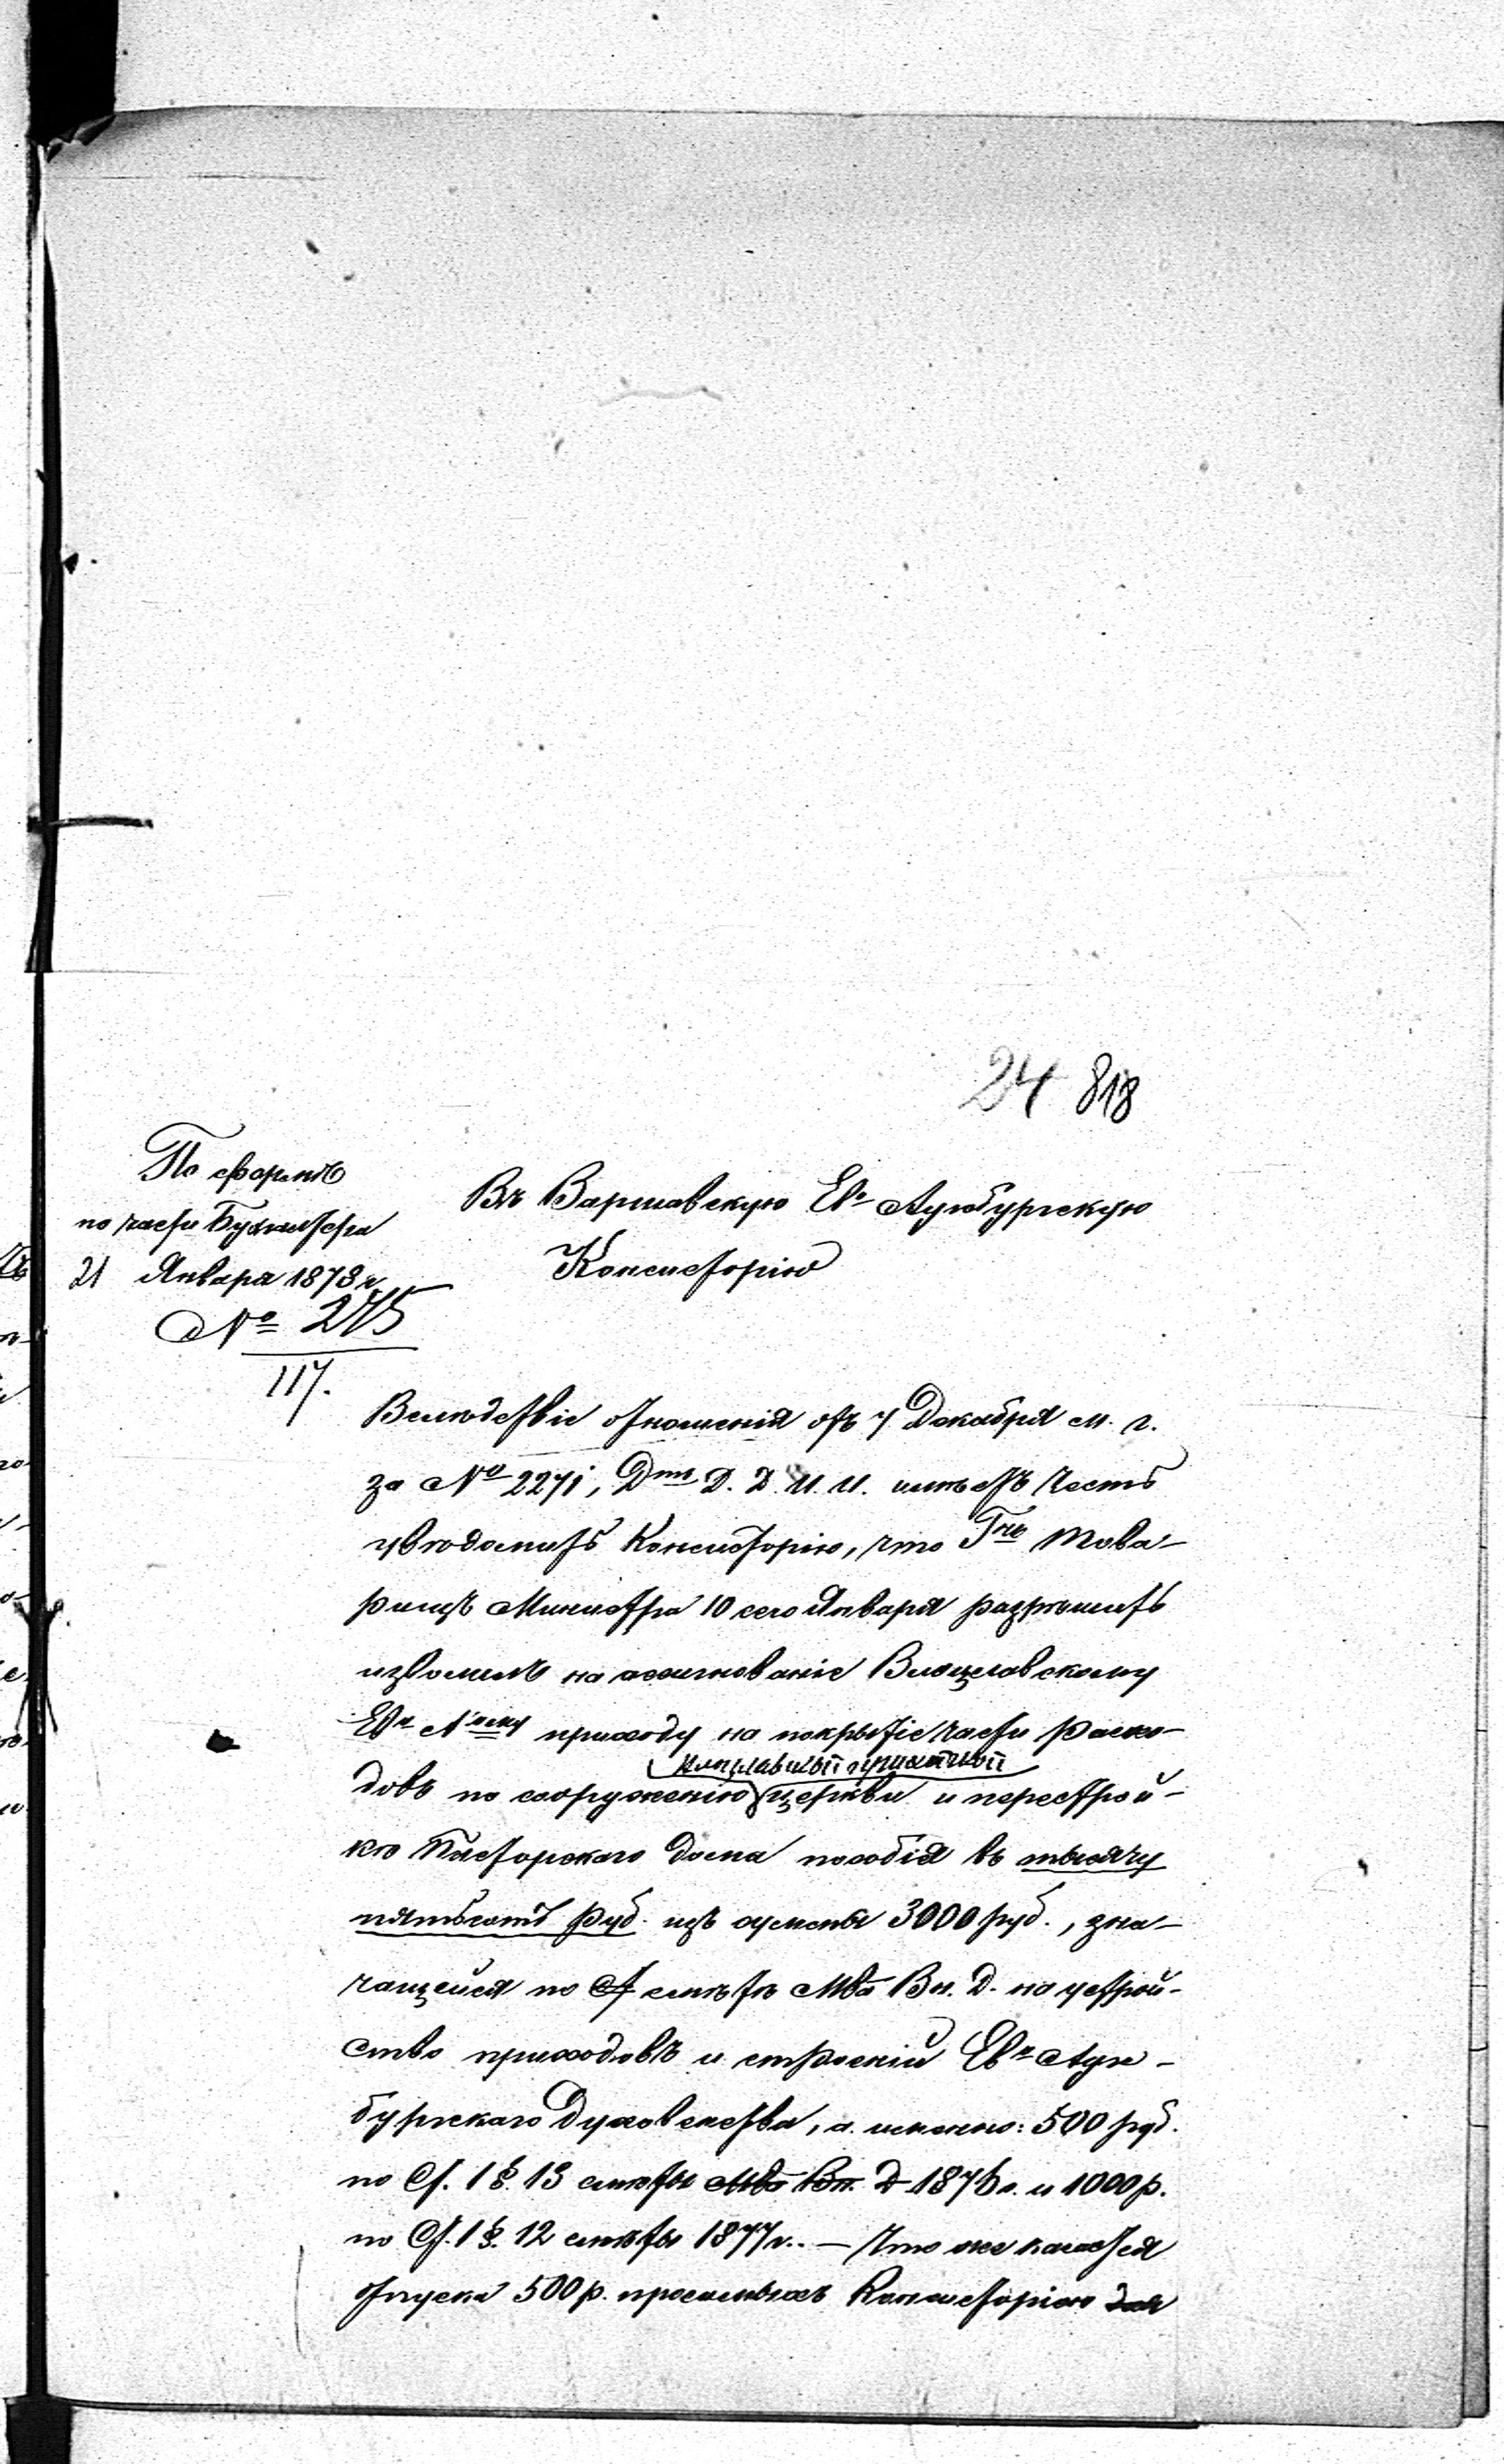 24 818
По формѣ
по части Бухгалтера
21 Января 1878 г.
№ 275
117.
Въ Варшавскую Ев. Аугсбургскую
Консисторію
Вслѣдствіе отношенія отъ 7 Декабря м. г.
за № 2271, Дтъ Д. Д. И. И. имѣетъ честь
увѣдомить Консисторію, что Гнъ Това-
рищъ Министра 10 сего Января разрѣшить
изволилъ на ассигнованіе Влоцлавскому
Евн Аскму приходу на покрытіе части расхо-
довъ по сооруженію церкви и перестрой-
кѣ Пасторскаго дома пособія въ тысячу
пятьсотъ руб. изъ суммы 3000 руб., зна-
чащейся по смѣтѣ Мва Вн. Д. на устрой-
ство приходовъ и строеній Евн Аугс-
бургскаго Духовенства, а именно: 500 руб.
по Ст. 1 §. 13 смѣты Мва Вн. Д 1876 г. и 1000 р.
по Ст. 1 §. 12 смѣты 1877 г. — Что же касается
отпуска 500 р. просимыхъ Консисторіею для